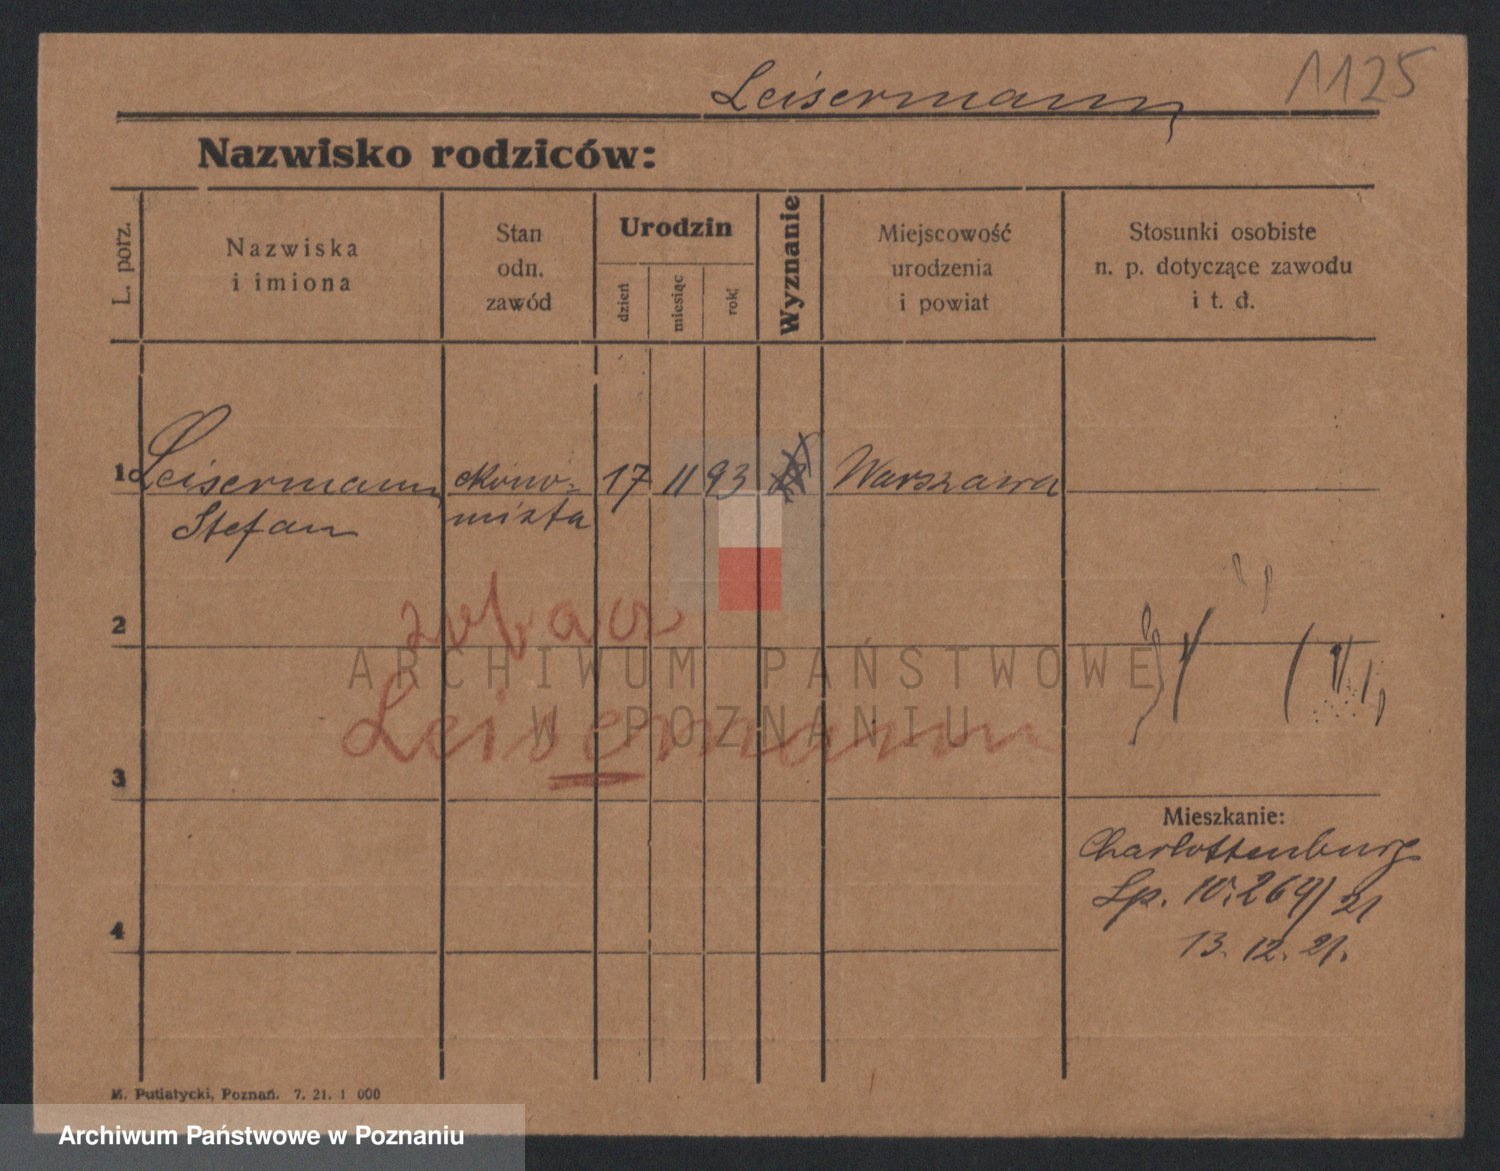 1125
Leisermann
Nazwisko rodziców:
L. porz.
Nazwiska
i imiona
Stan
odn.
zawód
Urodzin
dzień
miesiąc
rok
Wyznanie
Miejscowość
urodzenia
i powiat
Stosunki osobiste
n. p. dotyczące zawodu
i t. d.
1
Leisermann ekono- 17 11 93 Warszawa
Stefan mista
2
zobacz
ARCHIWUM PAŃSTWOWE
W POZNANIU
Leisemann
3
Mieszkanie:
Charlottenburg
Lp. 10.269/21
13.12.21.
4
M. Putiatycki, Poznań. 7. 21. 1 000
Archiwum Państwowe w Poznaniu